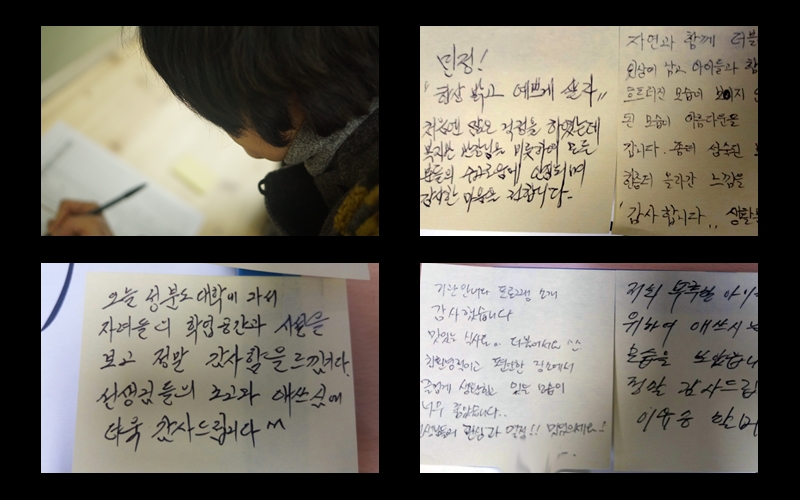 민정!
"항상 밝고 예쁘게 살자"
처음엔 많은 걱정을 하였는데
복지관 관장님을 비롯하여 모든
분들의 수고로움에 안심되며
감사한 마음을 전합니다-
자연과 함께 더불
인상이 남고 아이들과 함
흐트러진 모습이 보이지 않
된 모습이 아름다움을
갑니다. 좀더 성숙된
한층더 올라간 느낌을
"감사합니다"
오늘 성분도대학에 가서
자녀들의 학업공간과 시설을
보고 정말 감사함을 느낍니다.
선생님들의 노고과 애쓰심에
더욱 감사드립니다 ^^
기관안내나 프로그램 소개
감사했습니다
맛있는 식사도 더불어서요 ^^
친환경적이고 편안한 장소에서
즐겁게 생활하고 있는 모습이
너무 좋았습니다..
선생님들의 관심과 열정!! 멋있으세요!
저희 부족한 아이
위하여 애쓰시는
모습을 보았습니
정말 감사드립